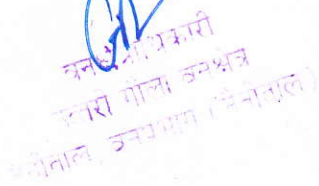 वनक्षेत्राधिकारी
उत्तरी गौला वनक्षेत्र
नैनीताल, वनप्रभाग (नैनीताल)